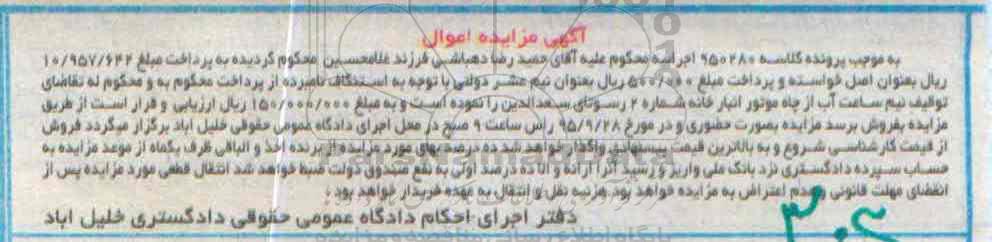 آگهی مزایده اموال
به موجب پرونده کلاسه ۹۵۰۲۸۰ اجرائیه محکوم علیه آقای حمید رضا دهباشی فرزند غلامحسین محکوم گردیده به پرداخت مبلغ ۱۰/۹۵۷/۶۴۲
ریال بعنوان اصل خواسته و پرداخت مبلغ ۵۰۰/۰۰۰ ریال بعنوان نیم عشر دولتی با توجه به استنکاف نامبرده از پرداخت محکوم به و محکوم له تقاضای
توقیف نیم ساعت آب از چاه موتور انبار خانه شماره ۲ رستوای سعدالدین را نموده است و به مبلغ ۱۵۰/۰۰۰/۰۰۰ ریال ارزیابی و قرار است از طریق
مزایده بفروش برسد مزایده بصورت حضوری و در مورخ ۹۵/۹/۲۸ راس ساعت ۹ صبح در محل اجرای دادگاه عمومی حقوقی خلیل اباد برگزار میگردد فروش
از قیمت کارشناسی شروع و به بالاترین قیمت پیشنهادی واگذار خواهد شد ده درصد بهای مورد مزایده از برنده اخذ و الباقی ظرف یکماه از موعد مزایده به
حساب سپرده دادگستری نزد بانک ملی واریز و رسید آنرا ارائه و الا ده درصد اولی به نفع صندوق دولت ضبط خواهد شد انتقال قطعی مورد مزایده پس از
انقضای مهلت قانونی و عدم اعتراض به مزایده خواهد بود هزینه نقل و انتقال به عهده خریدار خواهد بود.
دفتر اجرای احکام دادگاه عمومی حقوقی دادگستری خلیل اباد
ParsNamadData
پایگاه اطلاع رسانی مناقصه و مزایده